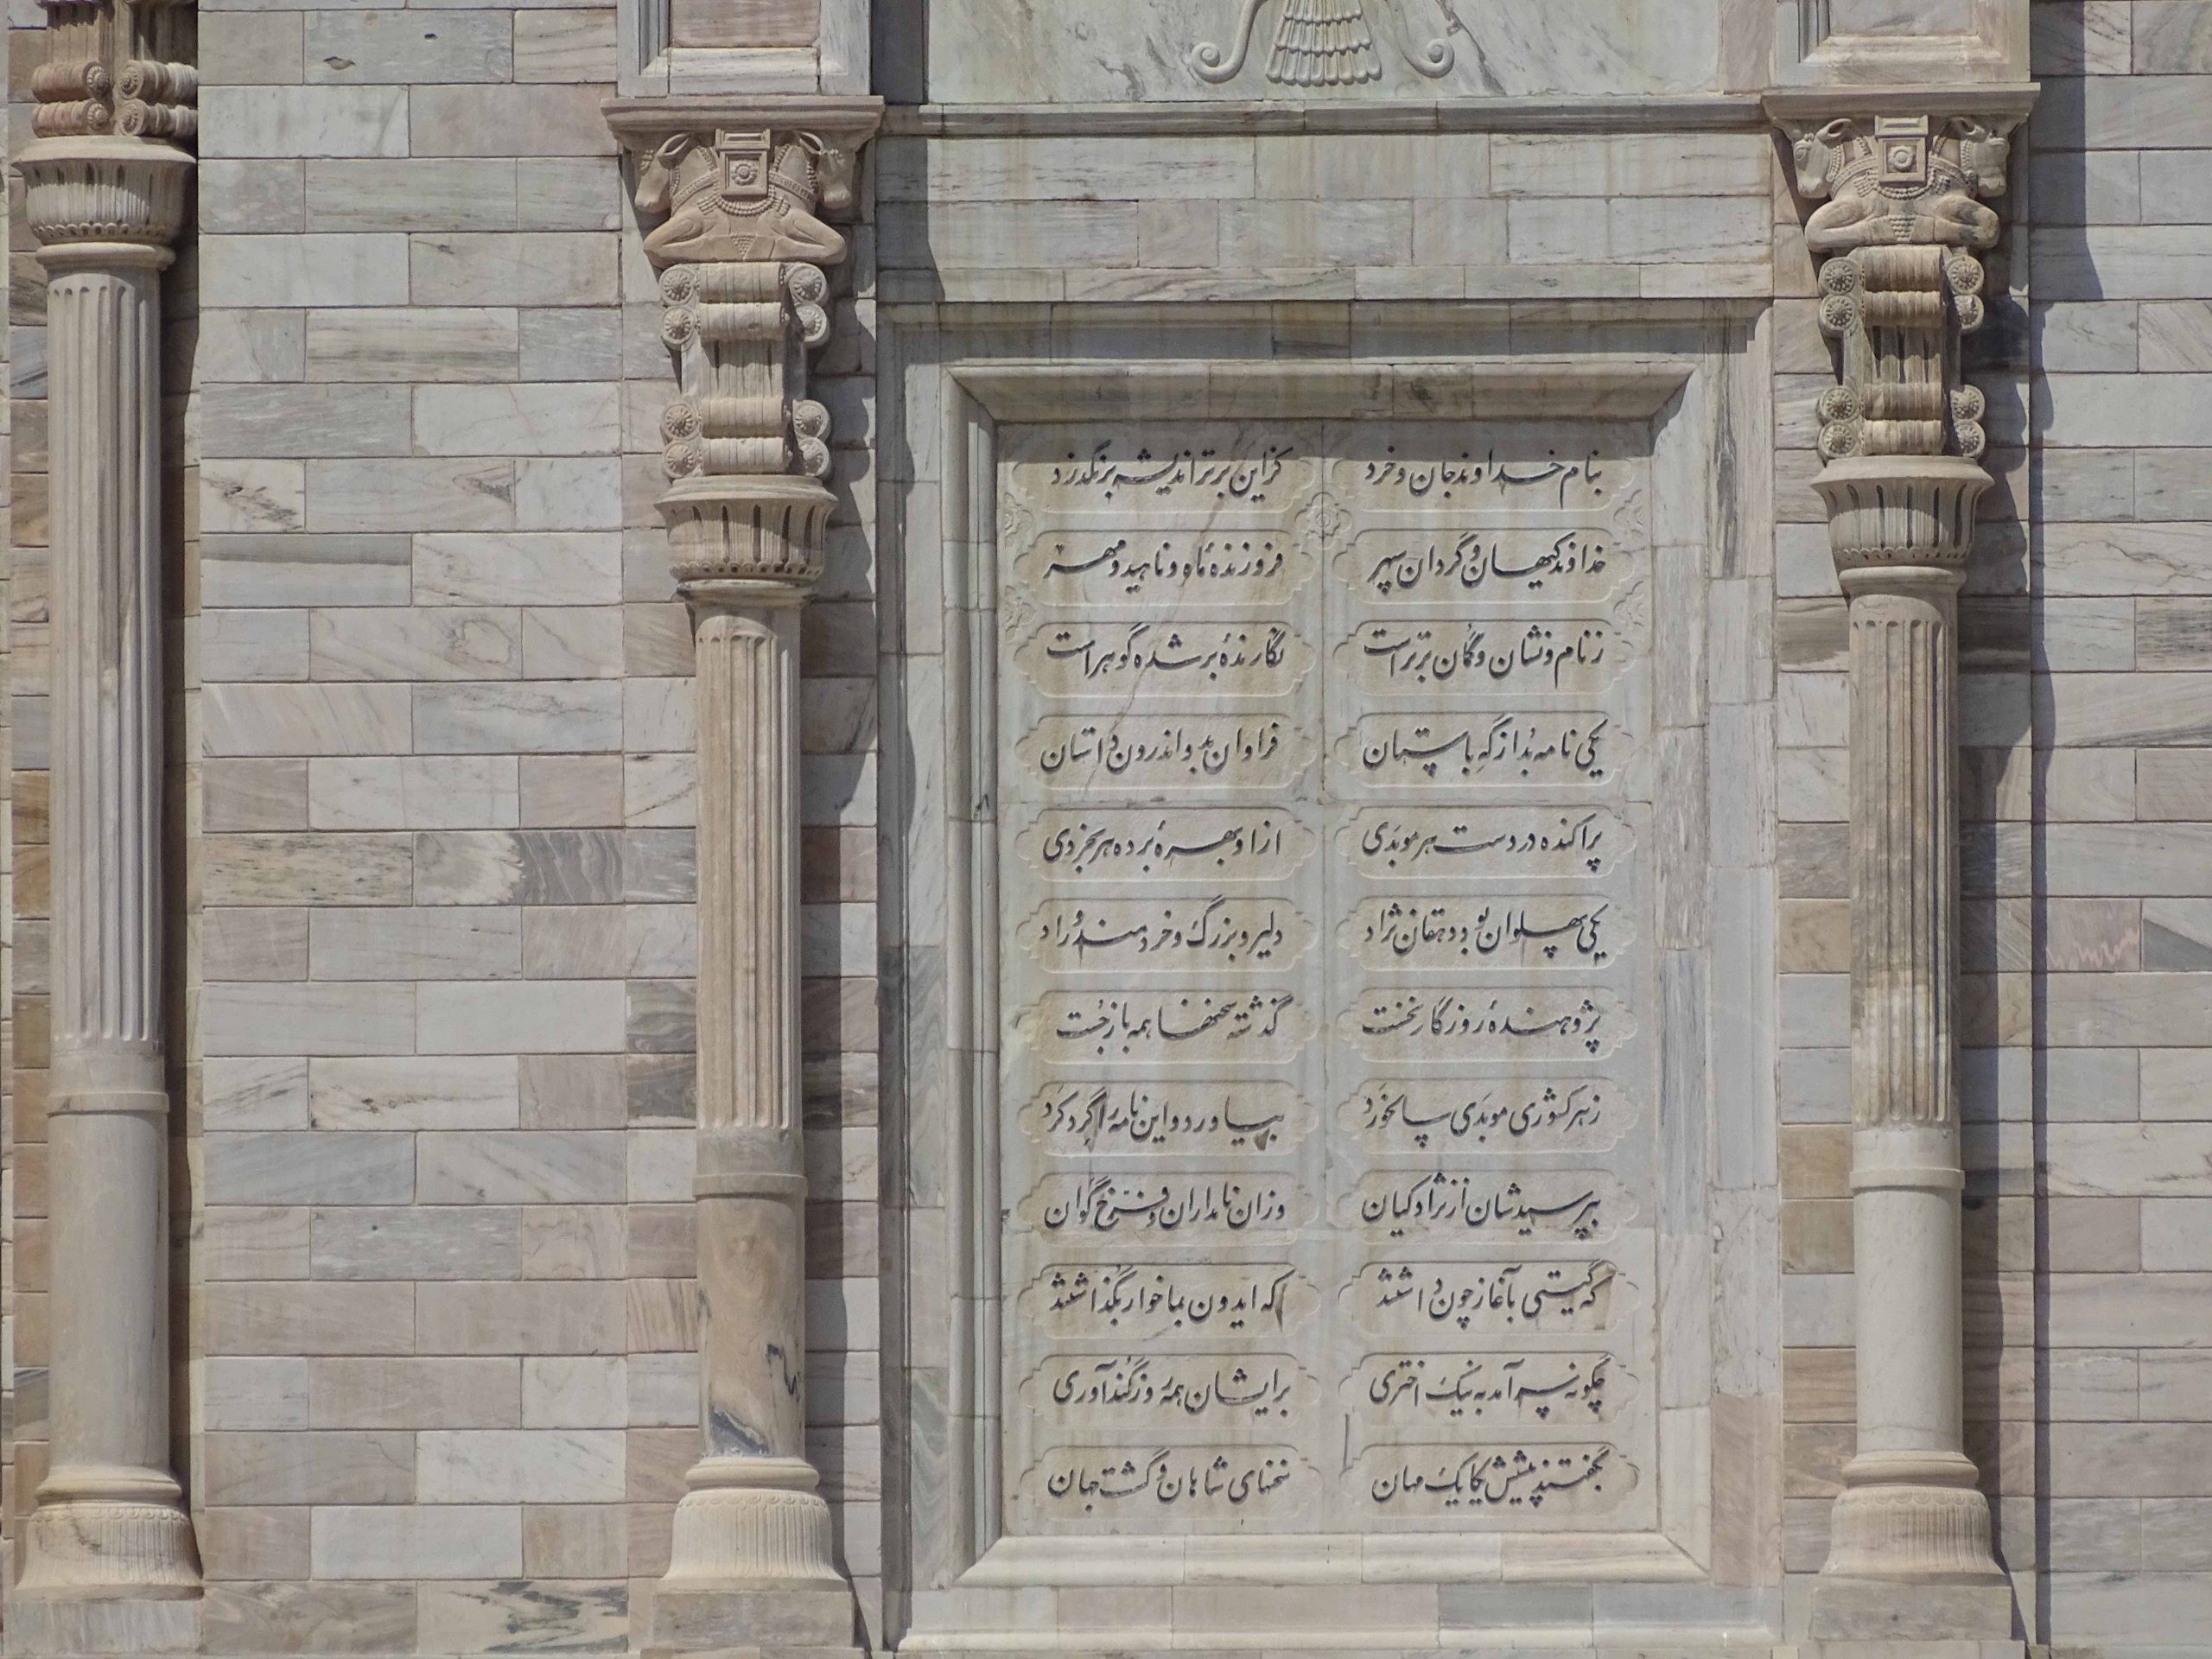 بنام خداوند جان و خرد کزاین برتر اندیشه برنگذرد
خداوند کیهان و گردان سپهر فروزندهٔ ماه و ناهید و مهر
ز نام و نشان و گمان برتر است نگارندهٔ بر شده گوهر است
یکی نامه بُد از گهِ باستان فراوان بدو اندرون داستان
پراکنده در دست هر موبَدی از او بهرهٔ برده هر بخردی
یکی پهلوان بود دهقان نژاد دلیر و بزرگ و خردمند و راد
پژوهندهٔ روزگار نخست گذشته سخنها همه بازجُست
ز هر کشوری موبَدی سالخَورد بیاورد و این نامه را گرد کرد
بپرسیدشان از نژاد کیان وزان نامداران و فرّخ گوان
که گیتی بآغاز چون داشتند که ایدون بما خوار بگذاشتند
چگونه سر آمد به نیک اختری برایشان همه روز گندآوری
بگفتند پیشش یکایک مهان سخنهای شاهان و گشت جهان